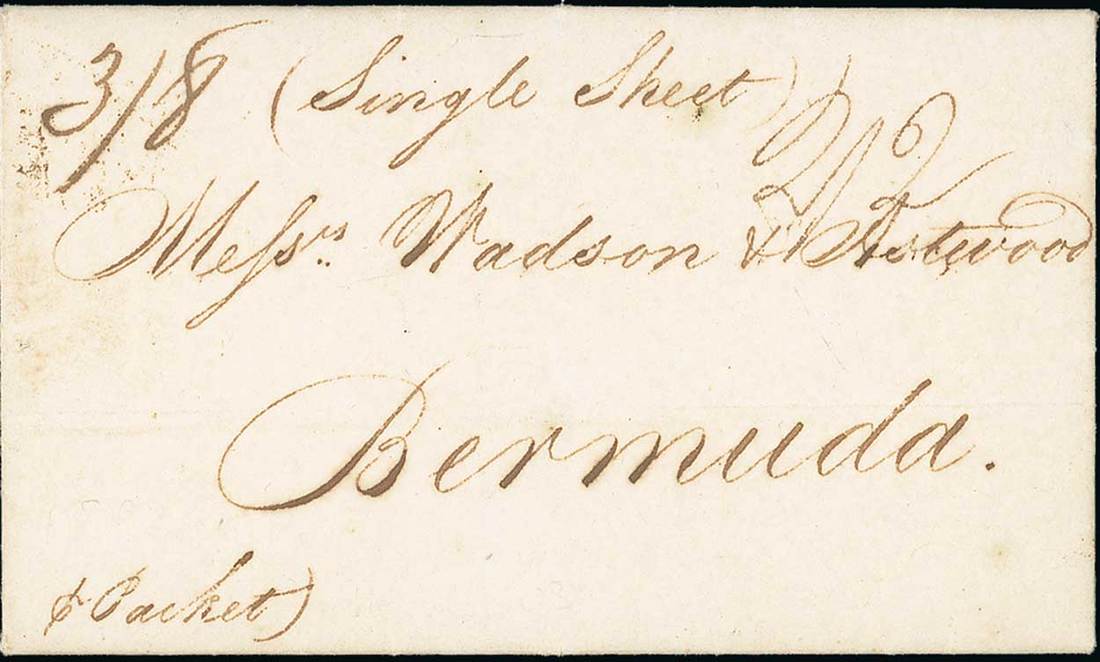 3/8 (Single Sheet)
Messrs. Wadson & Astwood
Bermuda.
⅌ Packet)